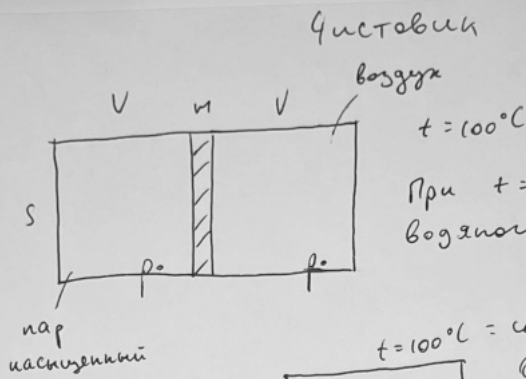 Чистовик
воздух
V м V
t = 100°C
При t =
водяног
S
p₀ p₀
пар
насыщенный
t = 100°C = c